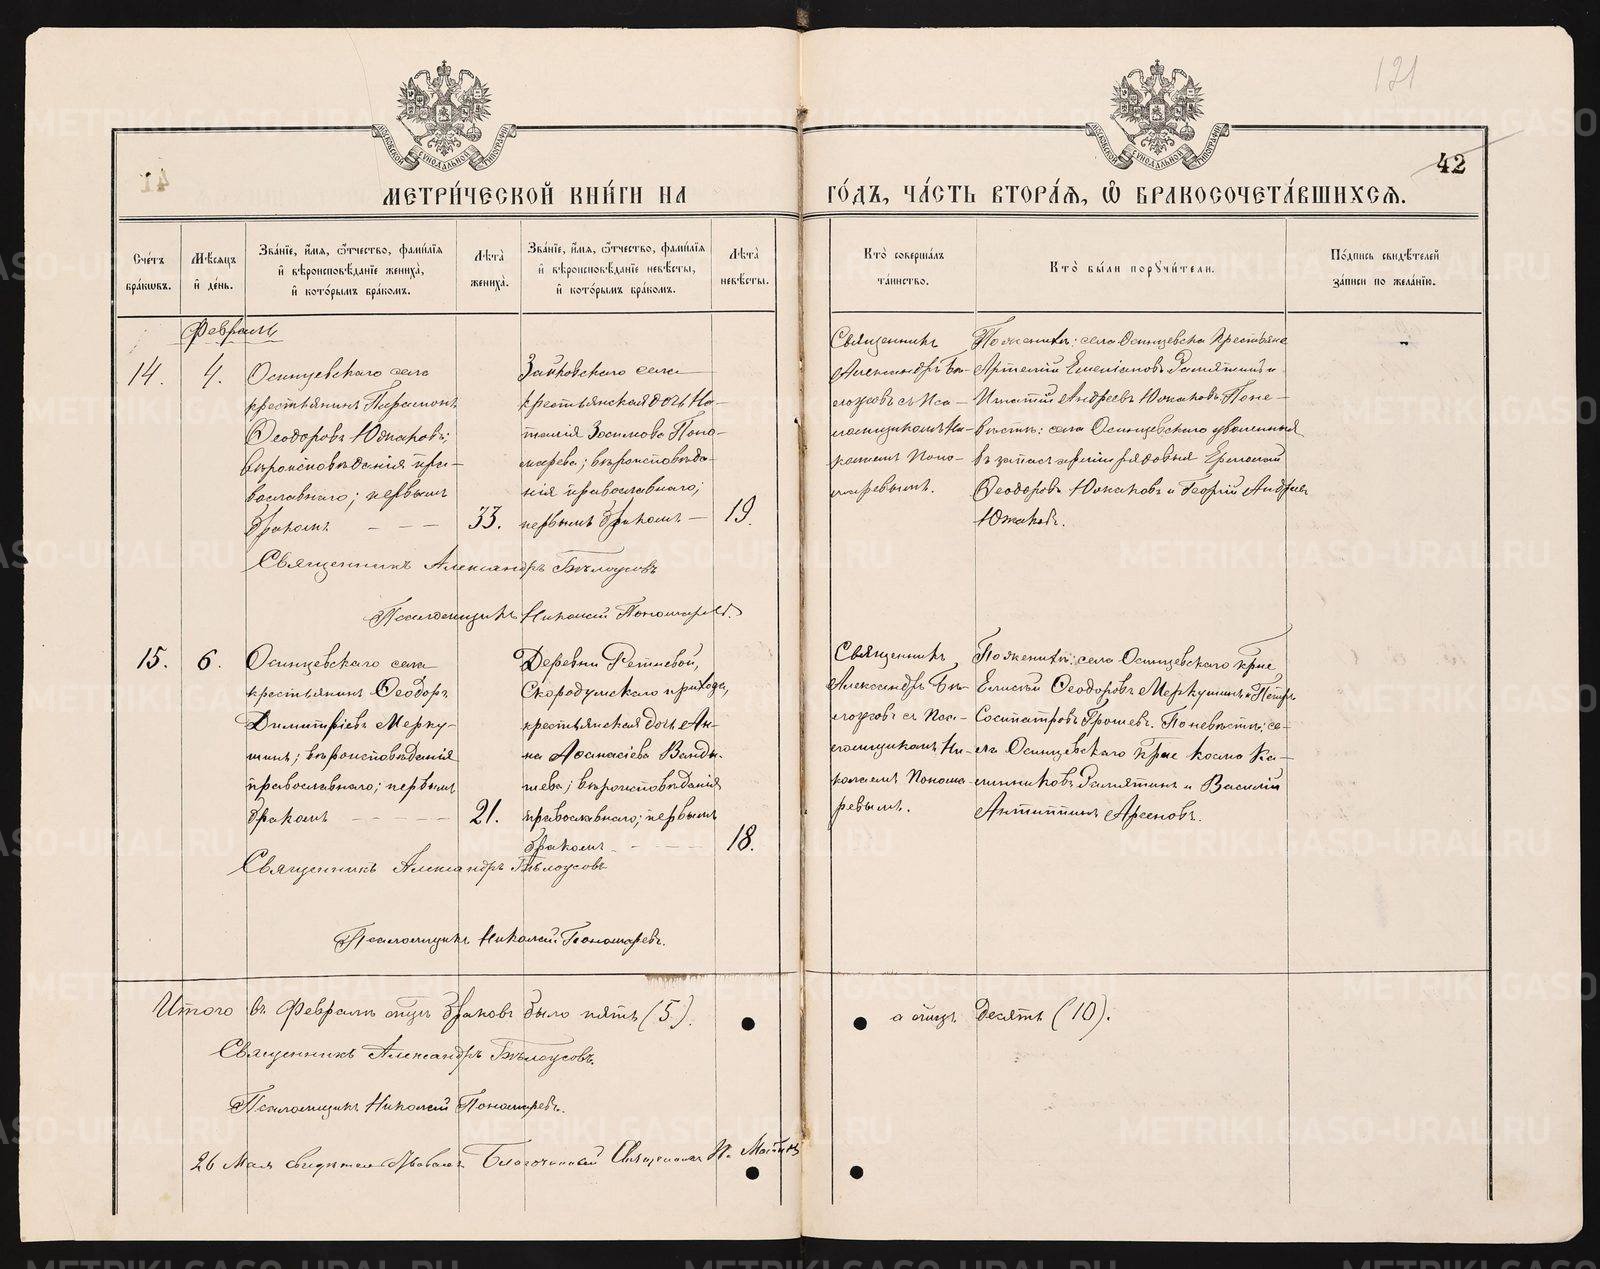 121
42
МЕТРИ́ЧЕСКОЙ КНИ́ГИ НА
ГО́ДЪ, ЧА́СТЬ ВТОРА́Ѧ, Ѽ БРАКОСОЧЕТА́ВШИХСѦ.
Сче́тъ бра́кѡвъ.
Мѣ́сяцъ и҆ де́нь.
Зва́нїе, и҆́мѧ, ѻ҆́тчество, фами́лїѧ
и҆ вѣроисповѣ́данїе жениха̀,
и҆ кото́рымъ бра́комъ.
Лѣта̀ жениха̀.
Зва́нїе, и҆́мѧ, ѻ҆́тчество, фами́лїѧ
и҆ вѣроисповѣ́данїе невѣ́сты,
и҆ кото́рымъ бра́комъ.
Лѣта̀ невѣ́сты.
Кто̀ соверша́лъ та́инство.
Кто̀ бы́ли порꙋчи́тели.
По́дпись свидѣ́телей за́писи по жела́нїю.
Февраль
14.
4.
Осинцевскаго села
крестьянинъ Парамонъ
Ѳеодоровъ Южаковъ;
вѣроисповѣданія пра-
вославнаго; первымъ
бракомъ
33.
Зайковскаго села
крестьянская дочь На-
талія Зосимова Поно-
марева; вѣроисповѣда-
нія православнаго;
первымъ бракомъ
19.
Священникъ
Александръ Бѣ-
лоусовъ съ Пса-
ломщикомъ Ни-
колаемъ Поно-
маревымъ.
По женихѣ: села Осинцевска крестьяне
Артемій Емеліановъ Замятинъ и
Игнатій Андреевъ Южаковъ. По не-
вѣстѣ: села Осинцевскаго уволенный
въ запасъ арміи рядовый Ермолай
Ѳеодоровъ Южаковъ и Георгій Андреев
Южаковъ.
Священникъ Александръ Бѣлоусовъ
Псаломщикъ Николай Пономаревъ.
15.
6.
Осинцевскаго села
крестьянинъ Ѳеодоръ
Димитріевъ Мерку-
шинъ; вѣроисповѣданія
православнаго; первымъ
бракомъ
21.
Деревни Ретневой,
Скородумскаго прихода,
крестьянская дочь Ан-
на Аѳанасіева Ванды-
шева; вѣроисповѣданія
православнаго; первымъ
бракомъ
18.
Священникъ
Александръ Бѣ-
лоусовъ съ Пса-
ломщикомъ Ни-
колаемъ Понома
ревымъ.
По женихѣ: села Осинцевскаго крне
Елисей Ѳеодоровъ Меркушинъ и Петръ
Сосипатровъ Грошевъ. По невѣстѣ: се-
ла Осинцевскаго крне Косма Ка-
линниковъ Замятинъ и Василій
Антипинъ Арсеновъ.
Священникъ Александръ Бѣлоусовъ
Псаломщикъ Николай Пономаревъ.
Итого въ Февралѣ мцѣ браковъ было пять (5).
а лицъ десять (10).
Священникъ Александръ Бѣлоусовъ.
Псаломщикъ Николай Пономаревъ.
26 Мая свидѣтельствовалъ Благочинный Священникъ